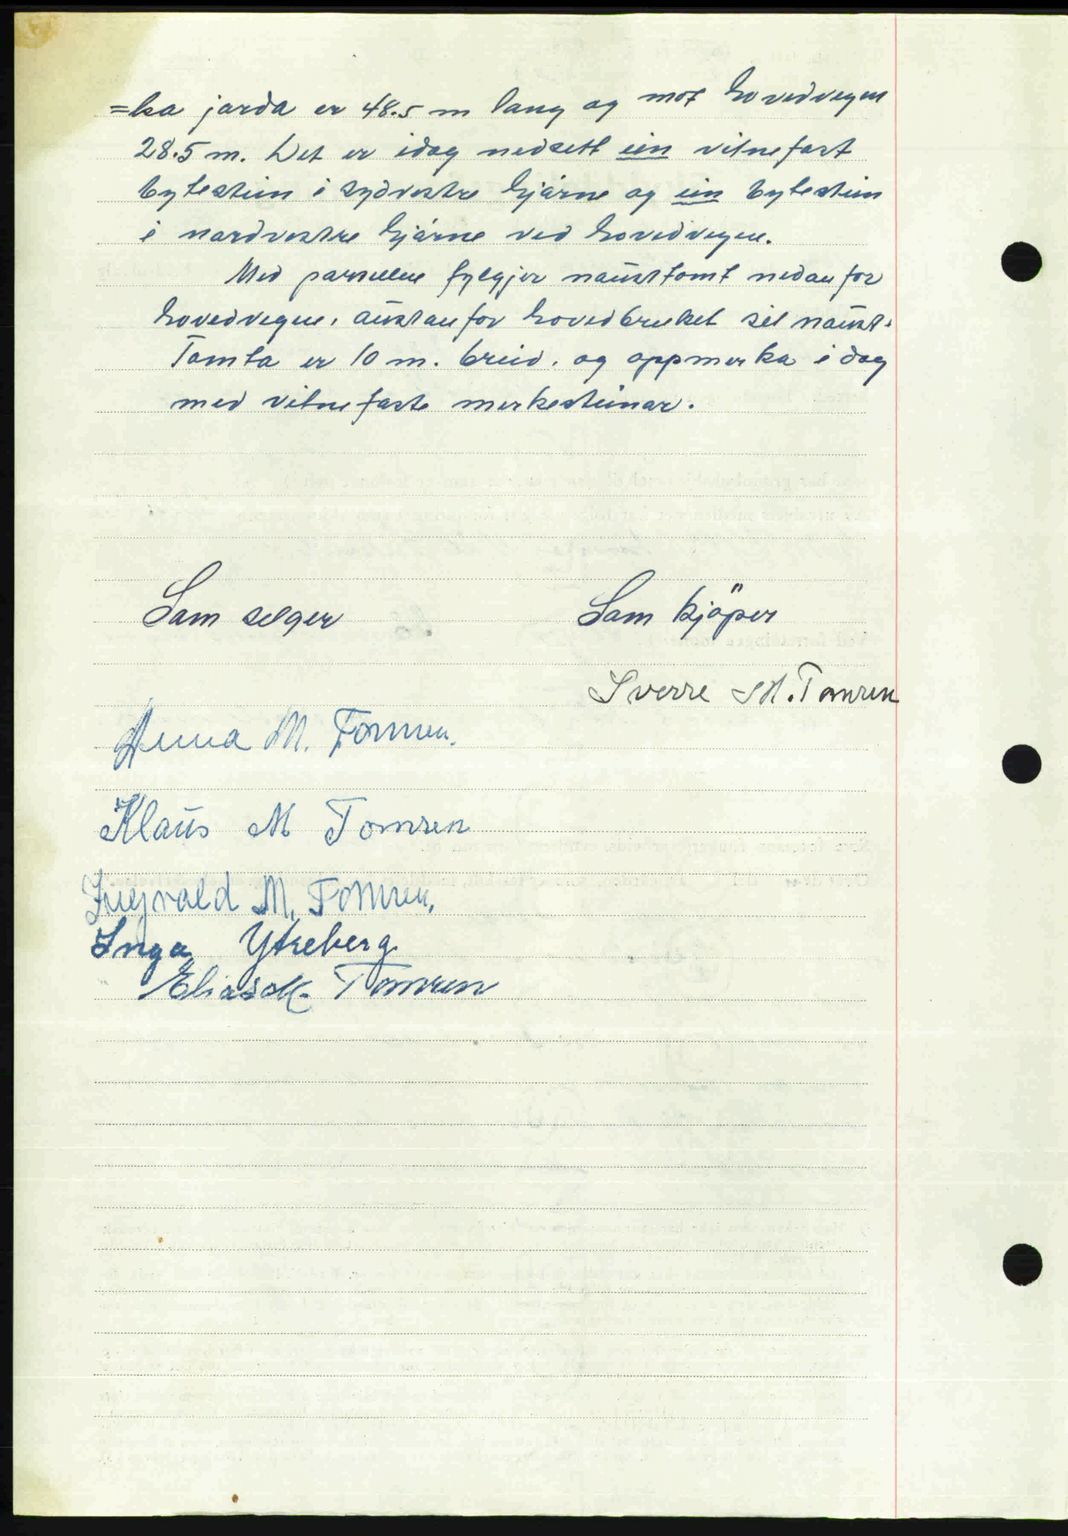 =ka jorda er 48.5 m lang og mot hovedvegen
28.5 m. Det er idag nedsett ein vitnefast
bytestein i sydvestre hjørne og ein bytestein
i nordvestre hjørne ved hovedvegen.
Med parsellen fylgjer nausttomt nedanfor
hovedvegen, austanfor hovedbruket sit naust.
Tomta er 10 m. breid, og oppmerka i dag
med vitnefaste merkesteinar.
Som selger
Som kjöper
Sverre M. Tomren
Anna M. Tomren.
Klaus M Tomren
Ingvald M. Tomren.
Inga Ytreberg
Elias M. Tomren